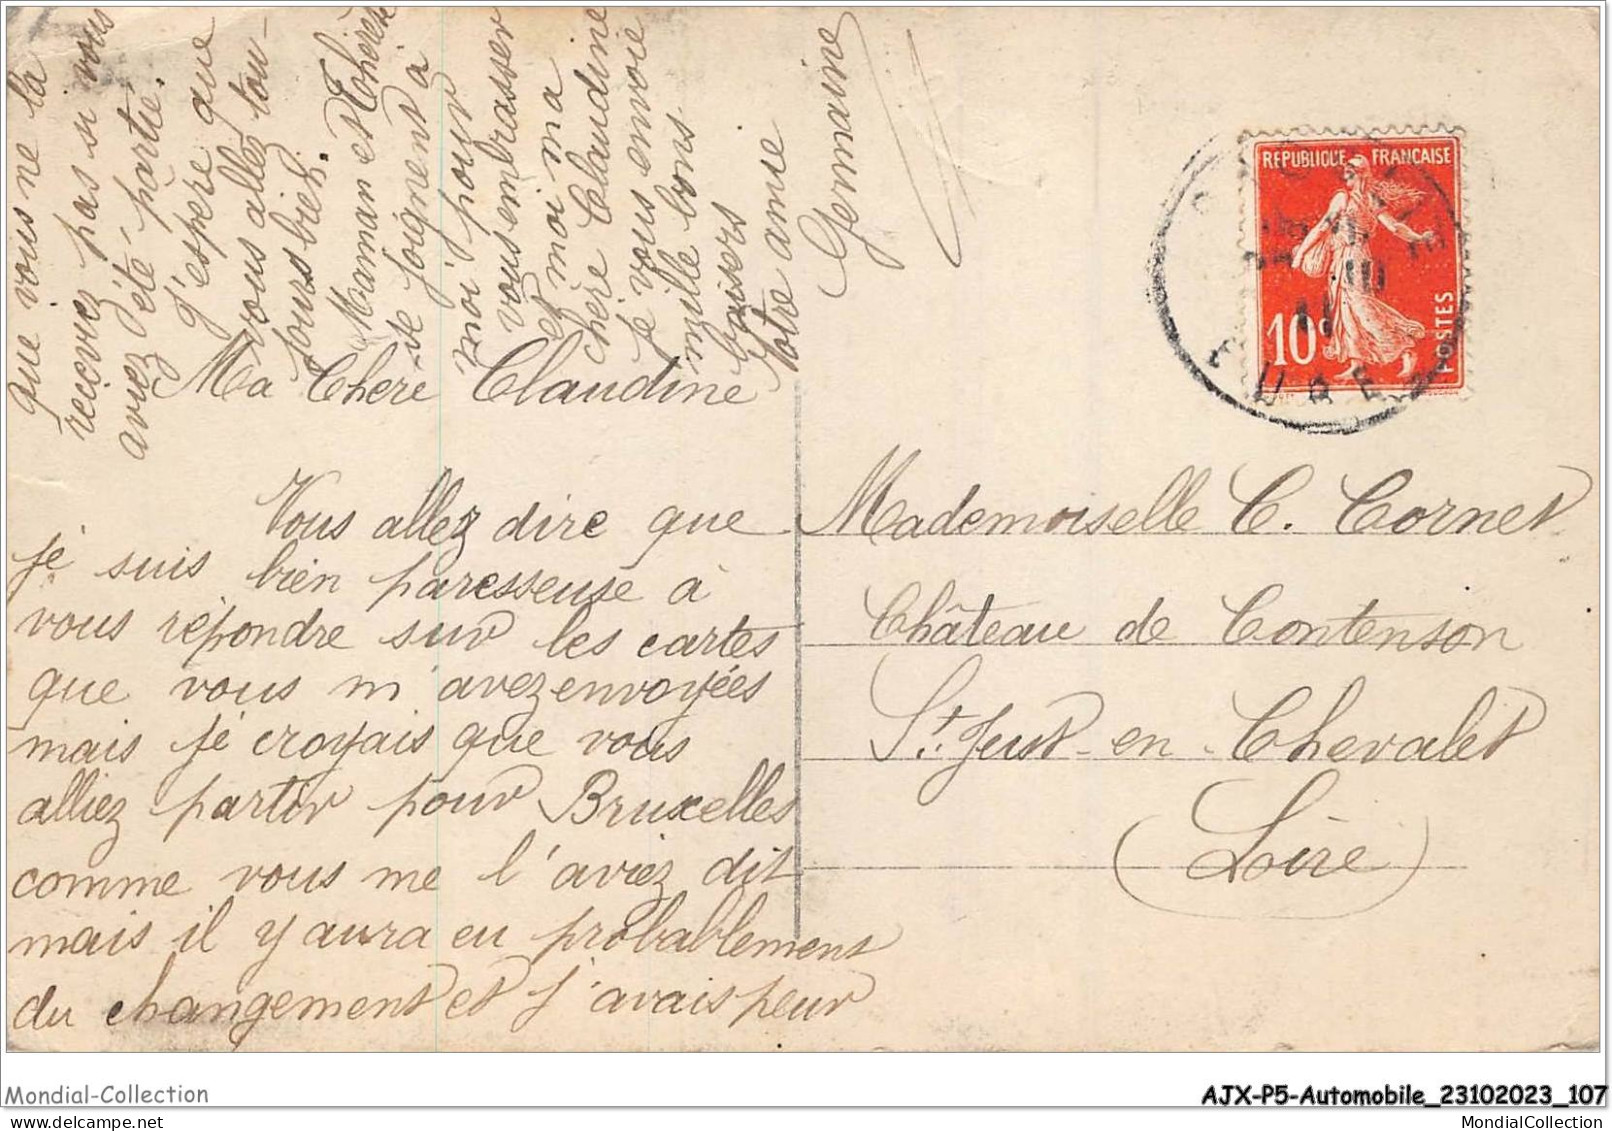 Ma Chère Claudine
Vous allez dire que
je suis bien paresseuse à
vous répondre sur les cartes
que vous m'avez envoyées
mais je croyais que vous
alliez partir pour Bruxelles
comme vous me l'aviez dit
mais il y aura eu probablement
du changement et j'avais peur
que vous ne la
receviez pas si vous
aviez été partie.
J'espère que
vous allez tou-
jours bien.
Maman et Thérèse
se joignent à
moi pour
vous embrasser
et moi ma
chère Claudine
je vous envoie
mille bons
baisers
Votre amie
Germaine
REPUBLIQUE FRANCAISE
10c
POSTES
EURE
Mademoiselle C. Cornet
Château de Contenson
St. Just-en-Chevalet
(Loire)
Mondial-Collection
AJX-P5-Automobile_23102023_107
MondialCollection